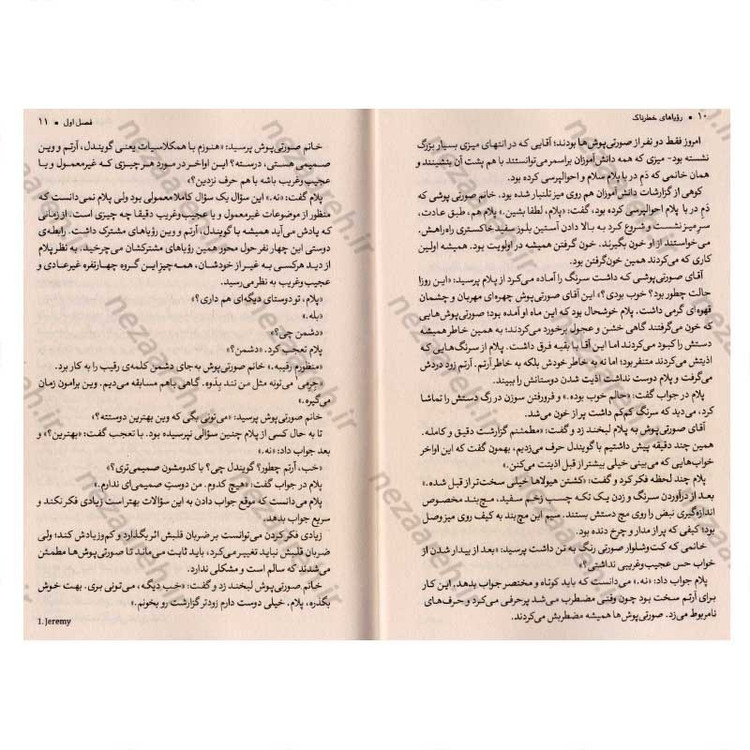 ۱۰ • رؤیاهای خطرناک
امروز فقط دو نفر از صورتی‌پوش‌ها بودند؛ آقایی که در انتهای میزی بسیار بزرگ
نشسته بود- میزی که همه دانش‌آموزان براسمر می‌توانستند با هم پشت آن بنشینند و
همان خانمی که دَمِ در با پلام سلام و احوالپرسی کرده بود.
کوهی از گزارشات دانش‌آموزان هم روی میز تلنبار شده بود. خانم صورتی پوشی که
دَمِ در با پلام احوالپرسی کرده بود، گفت: «پلام، لطفا بشین.» پلام هم، طبق عادت،
سرِ میز نشست و شروع کرد به بالا دادن آستین بلوز سفید خاکستری راه‌راهش.
می‌خواستند از او خون بگیرند. خون گرفتن همیشه در اولویت بود. همیشه اولین
کاری که می‌کردند همین خون‌گرفتن بود.
آقای صورتی‌پوشی که داشت سرنگ را آماده می‌کرد از پلام پرسید: «این روزا
حالت چطور بود؟ خوب بودی؟» این آقای صورتی‌پوش چهره‌ای مهربان و چشمان
قهوه‌ای گرمی داشت. پلام خوشحال بود که این ماه او آمده بود؛ صورتی‌پوش‌هایی
که خون می‌گرفتند گاهی خشن و عجول برخورد می‌کردند؛ به همین خاطر همیشه
دستش را کبود می‌کردند اما این آقا با بقیه فرق داشت. پلام از سرنگ‌هایی که
اذیتش می‌کردند متنفر بود؛ اما نه به خاطر خودش بلکه به خاطر آرتم. آرتم زود دردش
می‌گرفت و پلام دوست نداشت اذیت شدن دوستانش را ببیند.
پلام در جواب گفت: «حالم خوب بوده.» و فرورفتن سوزن در رگ دستش را تماشا
کرد. می‌دید که سرنگ کم‌کم داشت پر از خون می‌شد.
آقای صورتی‌پوش به پلام لبخند زد و گفت: «مطمئنم گزارشت دقیق و کامله.
همین چند دقیقه پیش داشتیم با گویندل حرف می‌زدیم، بهمون گفت که این اواخر
خواب‌هایی که می‌بینی خیلی بیشتر از قبل اذیتت می‌کنن.»
پلام چند لحظه فکر کرد و گفت: «کشتن هیولاها خیلی سخت‌تر از قبل شده.»
بعد از درآوردن سرنگ و زدن یک تکه چسب زخم سفید، مچ‌بند مخصوص
اندازه‌گیری نبض را روی مچ دستش بستند. سیم این مچ‌بند به کیفی روی میز وصل
بود؛ کیفی که پر از مدار و چرخ دنده بود.
خانمی که کت‌وشلوار صورتی رنگ به تن داشت پرسید: «بعد از بیدار شدن از
خواب حس عجیب‌وغریبی نداشتی؟»
پلام جواب داد: «نه.» می‌دانست که باید کوتاه و مختصر جواب بدهد. این کار
برای آرتم سخت بود چون وقتی مضطرب می‌شد پرحرفی می‌کرد و حرف‌های
نامربوط می‌زد. صورتی‌پوش‌ها همیشه مضطربش می‌کردند.
فصل اول • ۱۱
خانم صورتی‌پوش پرسید: «هنوزم با همکلاسیات یعنی گویندل، آرتم و وین
صمیمی هستی، درسته؟ این اواخر در مورد هر چیزی که غیرمعمول و یا
عجیب‌وغریب باشه با هم حرف نزدین؟»
پلام گفت: «نه.» این سؤال یک سؤال کاملا معمولی بود ولی پلام نمی‌دانست که
منظور از موضوعات غیرمعمول و یا عجیب‌وغریب دقیقا چه چیزی است؛ از زمانی
که یادش می‌آید همیشه با گویندل، آرتم و وین رؤیاهای مشترک داشت. رابطه‌ی
دوستی این چهار نفر حول محور همین رؤیاهای مشترکشان می‌چرخید. به نظر پلام
از دید هرکسی به غیر از خودشان، همه چیز این گروه چهارنفره غیرعادی و
عجیب‌وغریب به نظر می‌رسید.
«پلام، تو دوستای دیگه‌ای هم داری؟»
«بله.»
«دشمن چی؟»
پلام تعجب کرد. «دشمن؟»
«منظورم رقیبه.» خانم صورتی‌پوش به‌جای دشمن کلمه‌ی رقیب را به کار برد.
«جِرِمی۱ می‌تونه مثل من تند بِدُوه. گاهی باهم مسابقه می‌دیم. وین برامون زمان
می‌گیره.»
خانم صورتی‌پوش پرسید: «می‌تونی بگی که وین بهترین دوستته؟»
تا به حال کسی از پلام چنین سؤالی نپرسیده بود. با تعجب گفت: «بهترین؟» و
بعد جواب داد: «نه.»
«خب، آرتم چطور؟ گویندل چی؟ با کدومشون صمیمی‌تری؟»
پلام در جواب گفت: «هیچ کدوم. من دوستِ صمیمی‌ای ندارم.»
پلام می‌دانست که موقع جواب دادن به این سؤالات بهتر است زیادی فکر نکند و
سریع جواب بدهد.
زیادی فکر کردن می‌توانست بر ضربان قلبش اثر بگذارد و کم‌وزیادش کند؛ ولی
ضربان قلبش نباید تغییر می‌کرد، باید ثابت می‌ماند تا صورتی‌پوش‌ها مطمئن
می‌شدند که سالم است و مشکلی ندارد.
خانم صورتی‌پوش لبخند زد و گفت: «خب دیگه، می‌تونی بری. بهت خوش
بگذره، پلام. خیلی دوست دارم زودتر گزارشت رو بخونم.»
1. Jeremy
nezaaneh.ir